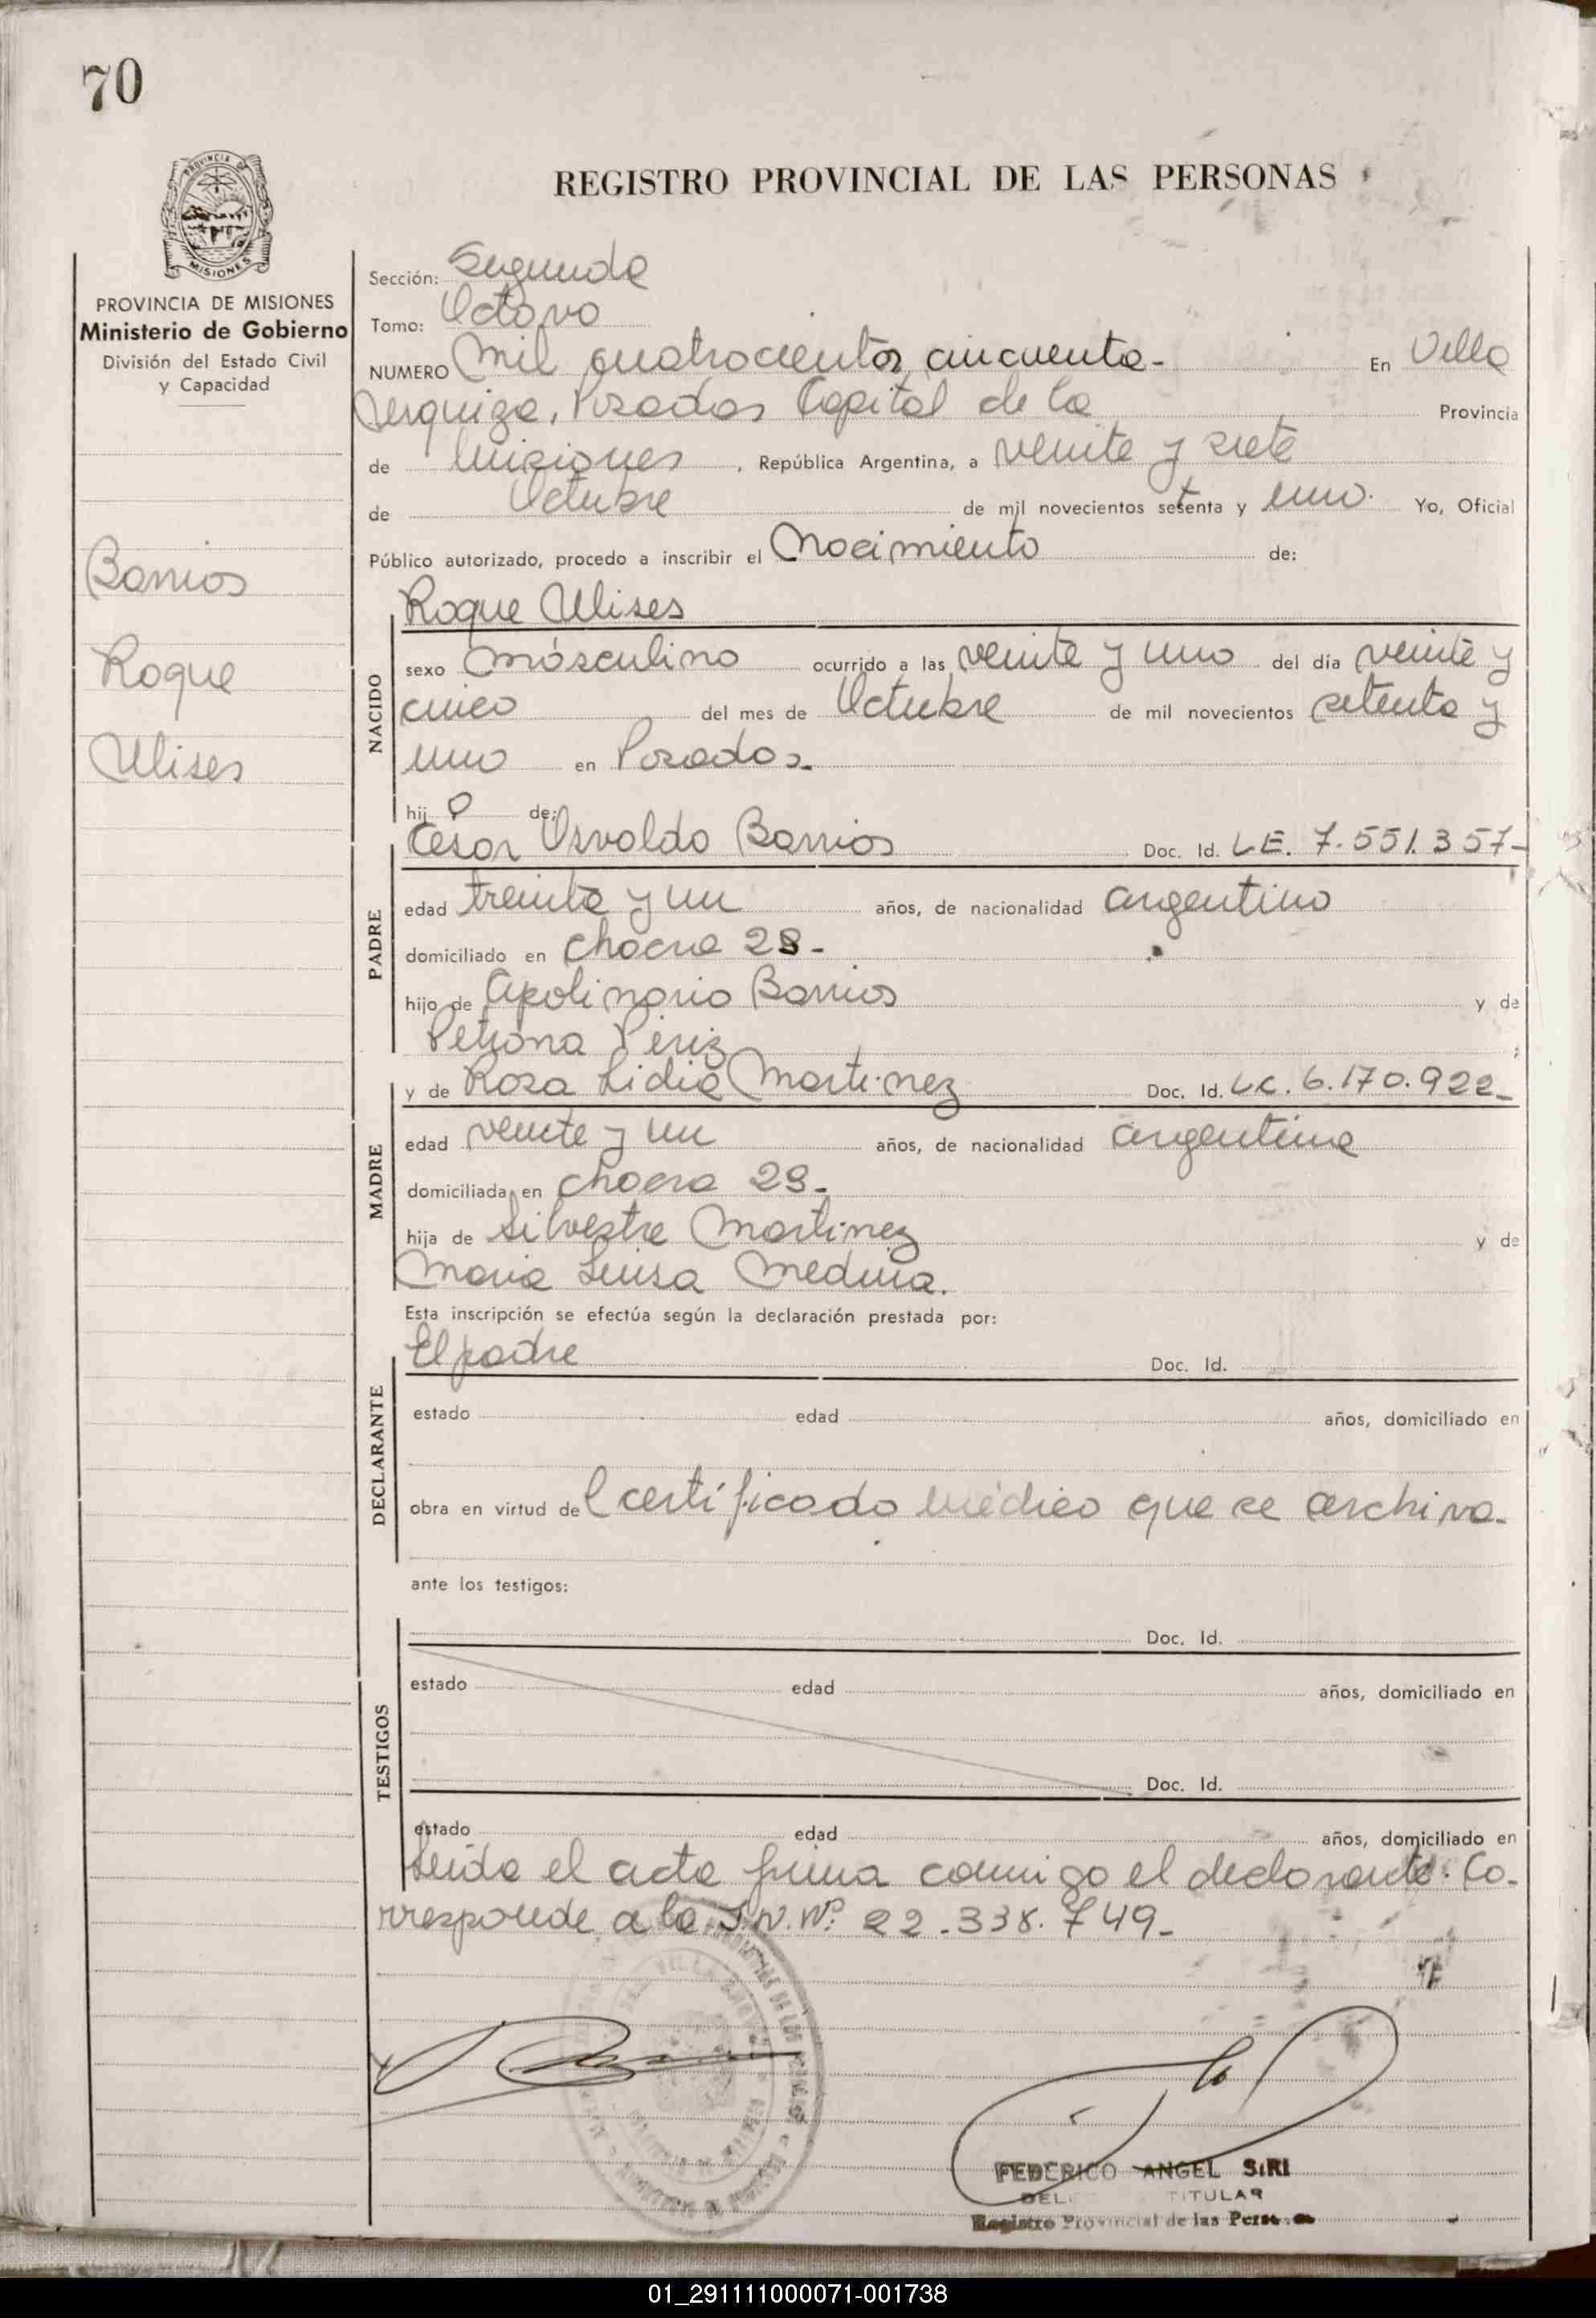 70
PROVINCIA DE
MISIONES
REGISTRO PROVINCIAL DE LAS PERSONAS
PROVINCIA DE MISIONES
Ministerio de Gobierno
División del Estado Civil
y Capacidad
Barrios
Roque
Ulises
Sección: Segunda
Tomo: Octavo
NUMERO Mil cuatrocientos cincuenta- En Villa
Urquiza, Posadas Capital de la Provincia
de Misiones, República Argentina, a veinte y siete
de Octubre de mil novecientos setenta y uno. Yo, Oficial
Público autorizado, procedo a inscribir el Nacimiento de:
NACIDO
Roque Ulises
sexo másculino ocurrido a las veinte y uno del día veinte y
cinco del mes de Octubre de mil novecientos setenta y
uno en Posadas.
hijo de:
PADRE
César Osvaldo Barrios Doc. Id. L.E. 7.551.357-
edad treinta y un años, de nacionalidad argentino
domiciliado en chacra 28-
hijo de Apolinario Barrios y de
Petrona Périz;
MADRE
y de Rosa Lidia Martinez Doc. Id. L.C. 6.170.922-
edad veinte y un años, de nacionalidad argentina
domiciliada en chacra 28-
hija de Silvestre Martinez y de
Maria Luisa Medina.
Esta inscripción se efectúa según la declaración prestada por:
DECLARANTE
El padre Doc. Id.
estado edad años, domiciliado en
obra en virtud del certificado médico que se archiva-
ante los testigos:
TESTIGOS
Doc. Id.
estado edad años, domiciliado en
Doc. Id.
estado edad años, domiciliado en
Leida el acta firma conmigo el declarante. Co-
rresponde a la I.N.Nº 22.338.749-
FEDERICO ANGEL SIRI
TITULAR
Registro Provincial de las
01_291111000071-001738